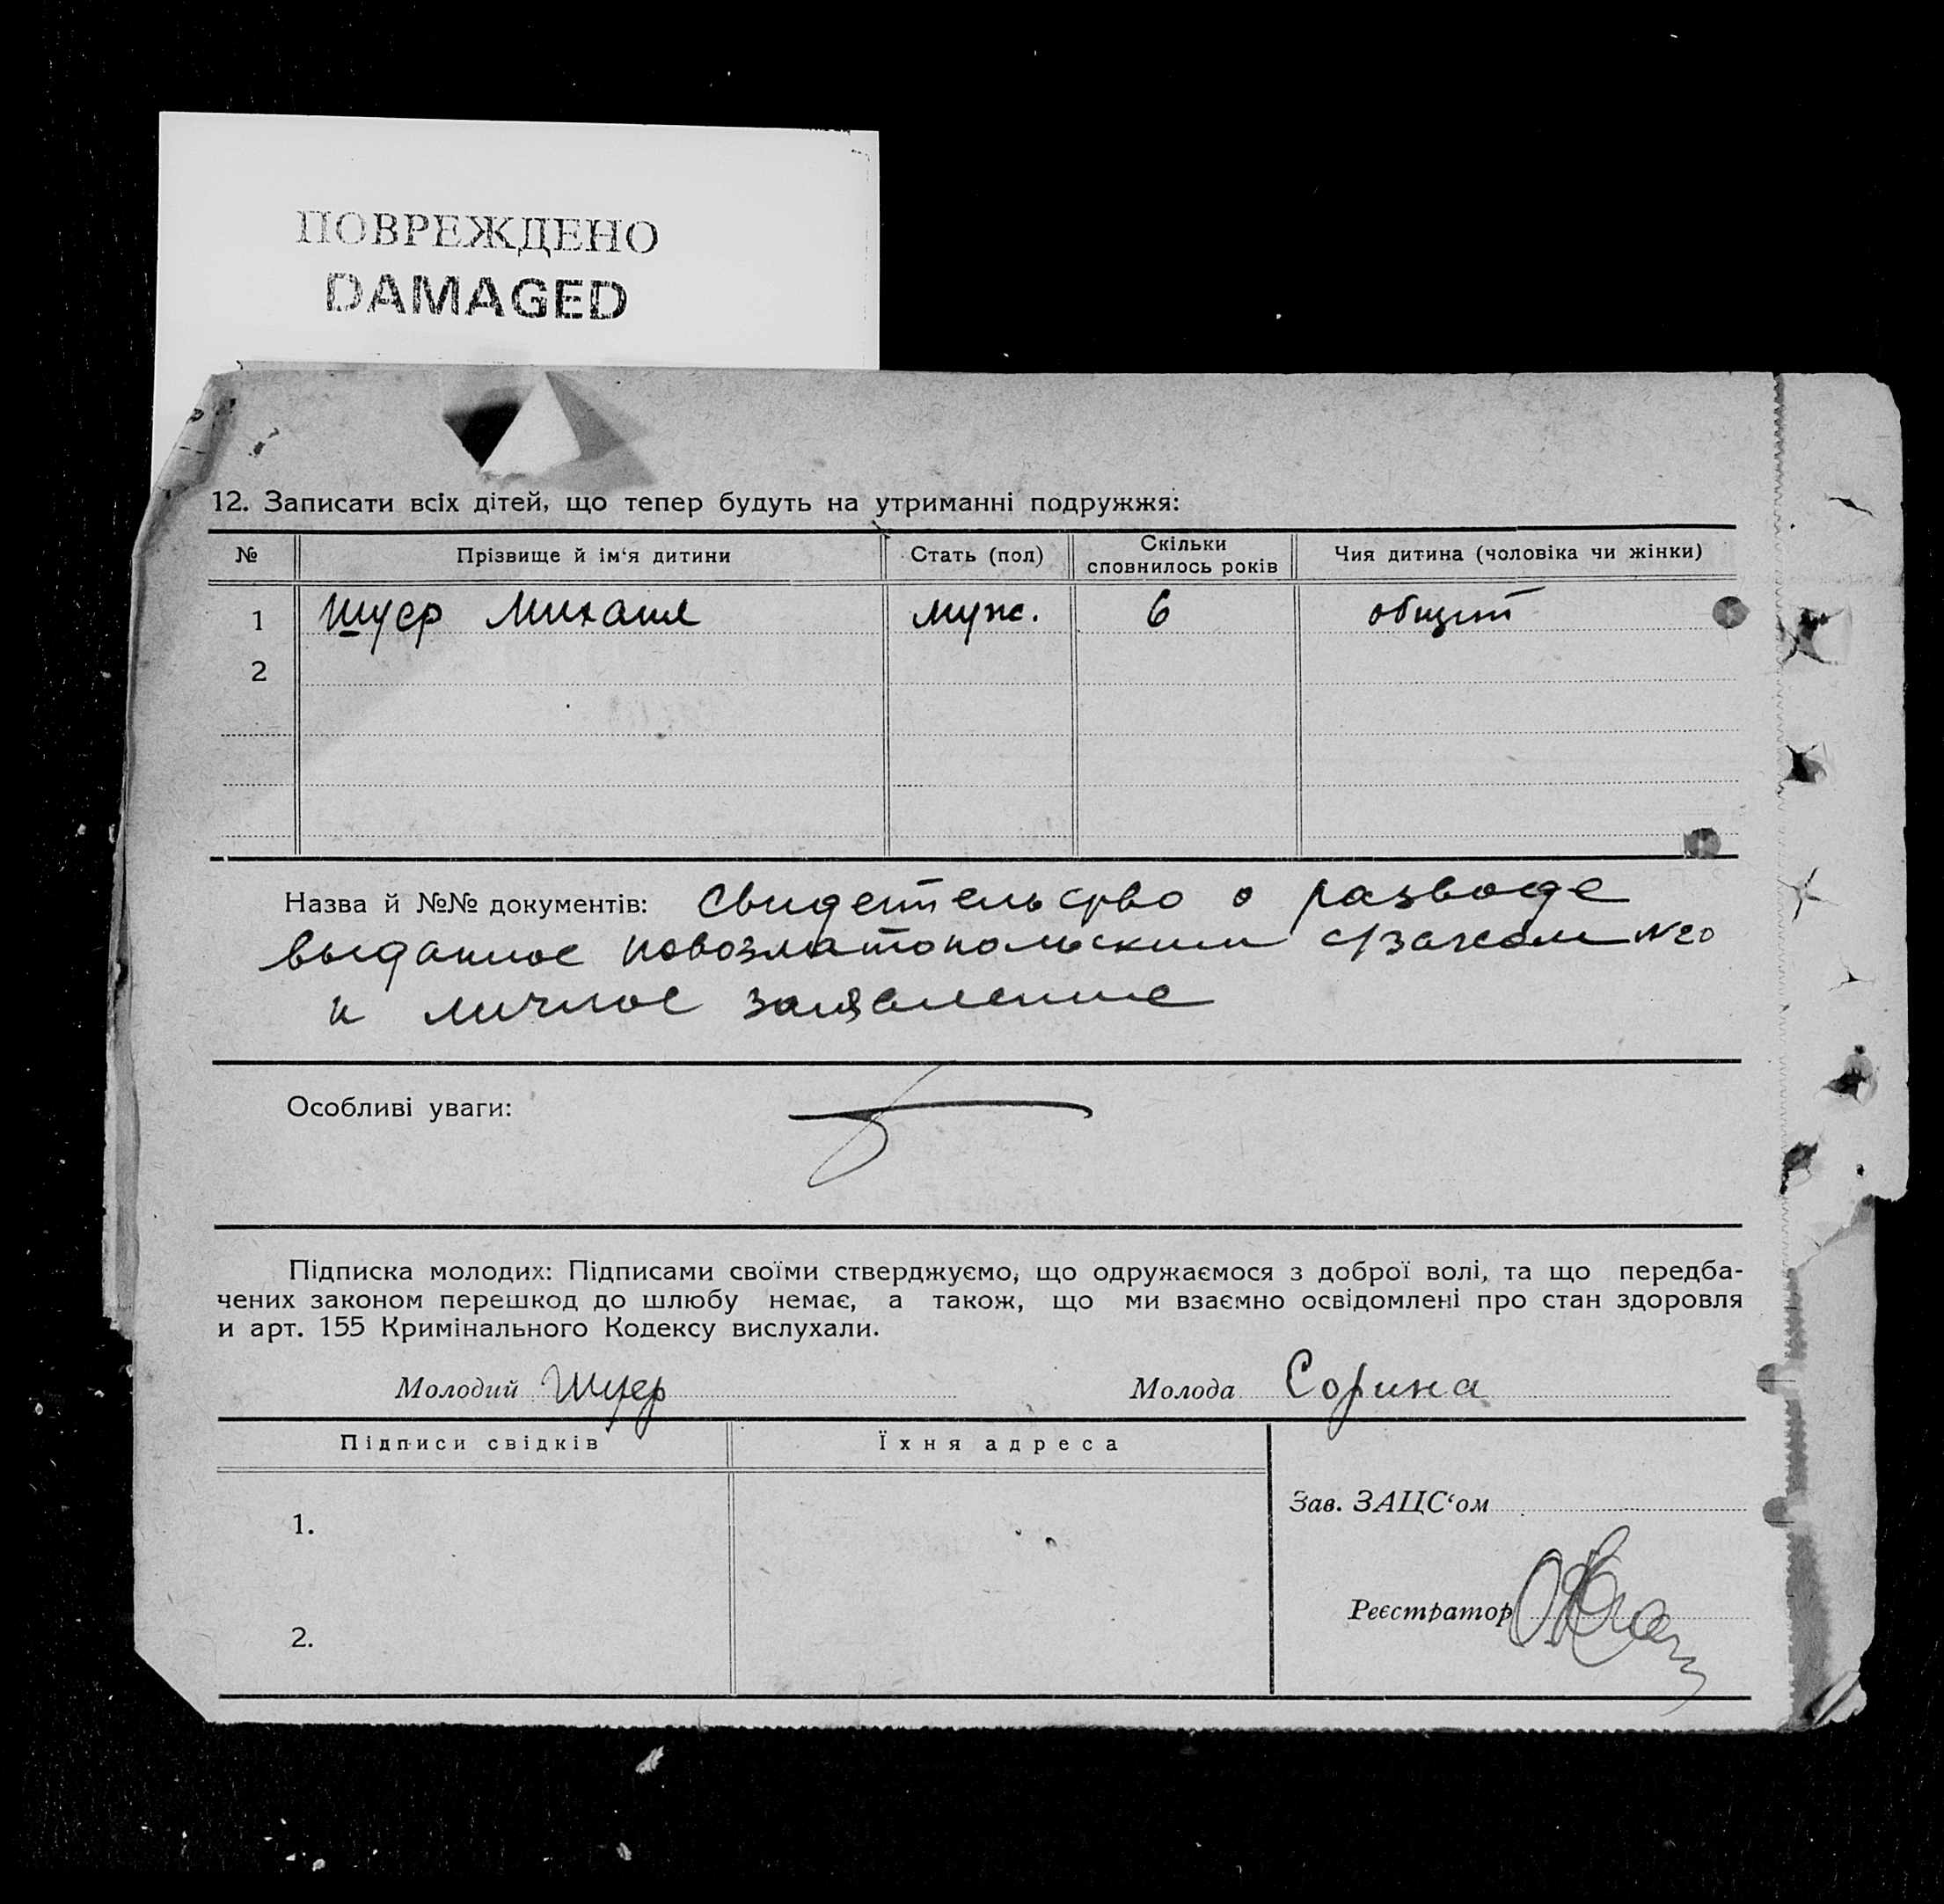 ПОВРЕЖДЕНО
DAMAGED
12. Записати всіх дітей, що тепер будуть на утриманні подружжя:
№ Прізвище й ім‘я дитини Стать (пол) Скільки сповнилось років Чия дитина (чоловіка чи жінки)
1 Шуер Михаил муж. 6 общий
2
Назва й №№ документів: Свидетельство о разводе
выданное новозлатопольским с/загсом №20
и личное заявление
Особливі уваги:
Підписка молодих: Підписами своїми стверджуємо, що одружаємося з доброї волі, та що передба-
чених законом перешкод до шлюбу немає, а також, що ми взаємно освідомлені про стан здоровля
и арт. 155 Кримінального Кодексу вислухали.
Молодий Шуер Молода Сорина
Підписи свідків Їхня адреса
Зав. ЗАЦС‘ом
1.
Реєстратор
2.